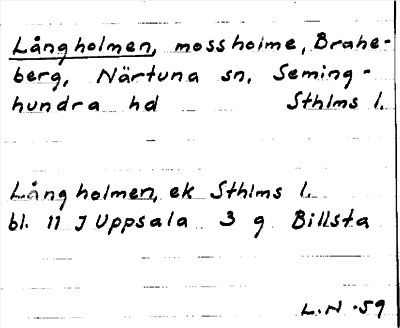 Långholmen, mossholme, Brahe-
berg, Närtuna sn, Seming-
hundra hd Sthlms l.
Långholmen, ek Sthlms l.
bl. 11 J Uppsala 3 g Billsta
L.N -59